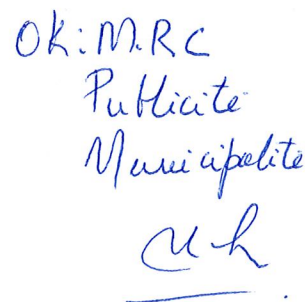 OK: M.R.C
Publicité
Municipalité